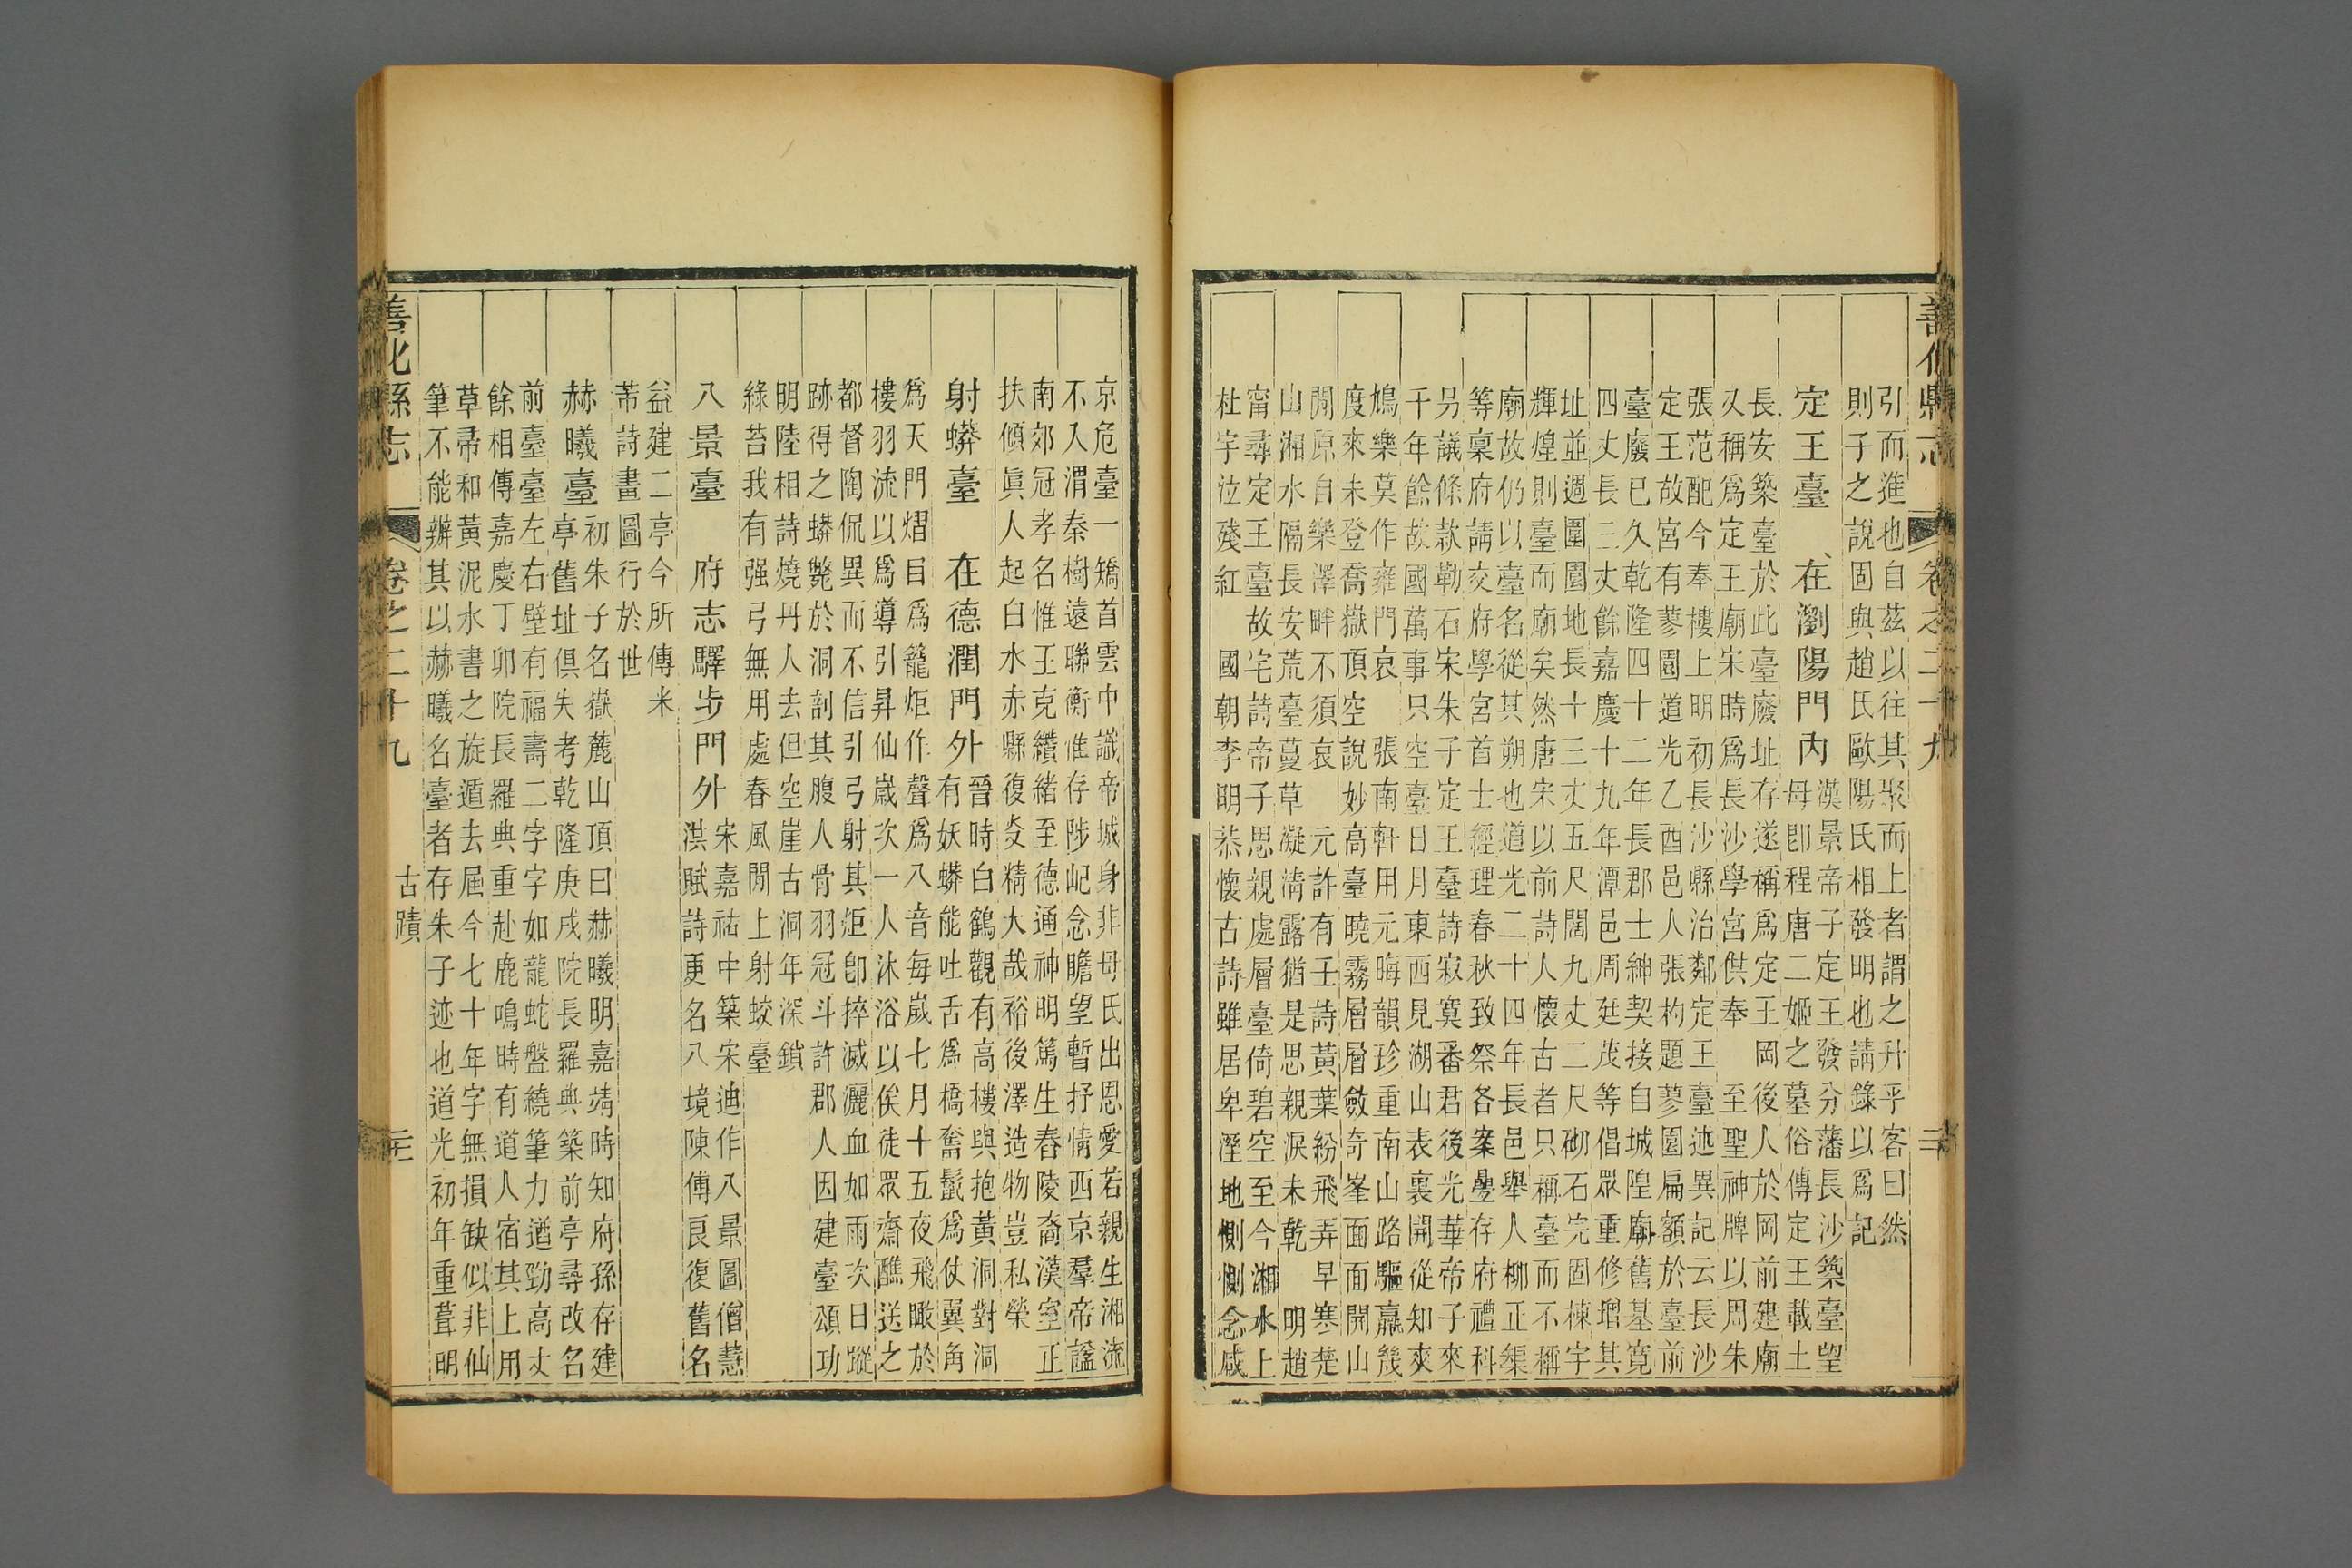 善化縣志 卷之二十九
引而進也自茲以往其聚而上者謂之升乎客曰然
則子之說固與趙氏歐陽氏相發明也請錄以爲記
定王臺 在瀏陽門內
漢景帝子定王發分藩長沙築臺望
母卽程唐二姬之墓俗傳定王載土
長安築臺於此臺廢址存遂稱爲定王岡後人於岡前建廟
又稱爲定王廟宋時爲長沙學宮供奉 至聖神牌以周朱
張范配今奉樓上明初長沙縣治鄰定王臺迹異記云長沙
定王故宮有蓼園道光乙酉邑人張杓題蓼園扁額於臺前
臺廢已久乾隆四十二年長郡士紳契接自城隍廟舊基寬
四丈長三丈餘嘉慶十九年潭邑周廷茂等倡眾重修增其
址並週圍園地長十三丈五尺闊九丈二尺砌石完固棟宇
輝煌則臺而廟矣然唐宋以前詩人懷古者只稱臺而不稱
廟故仍以臺名從其朔也道光二十四年長邑舉人柳正渠
等稟府請交府學宮首士經理春秋致祭各案疊存府禮科
另議條款勒石宋朱子定王臺詩寂寞番君後光華帝子來
千年餘故國萬事只空臺日月東西見湖山表裏開從知爽
鳩樂莫作雍門哀 張南軒用元晦韻珍重南山路驅羸幾
度來未登喬嶽頂空說妙高臺曉霧層層斂奇峯面面開山
間原自樂澤畔不須哀 元許有壬詩黃葉紛飛弄早寒楚
山湘水隔長安荒臺蔓草凝清露猶是思親淚未乾 明趙
甯尋定王臺故宅詩帝子思親處層臺倚碧空至今湘水上
杜宇泣殘紅 國朝李明恭懷古詩雖居卑溼地惻惻念咸
京危臺一矯首雲中識帝城身非母氏出恩愛若親生湘流
不入渭秦樹遠聯衡惟存陟屺念瞻望暫抒情西京羣帝謚
南郊冠孝名惟王克纘緒至德通神明篤生舂陵裔漢室正
扶傾眞人起白水赤縣復炎精大哉裕後澤造物豈私榮
射蟒臺 在德潤門外
晉時白鶴觀有高樓與抱黃洞對洞
有妖蟒能吐舌爲橋奮鬣爲仗翼角
爲天門熠目爲籠炬作聲爲八音每歲七月十五夜飛瞰於
樓羽流以爲導引昇仙歲次一人沐浴以俟徒眾齋醮送之
都督陶侃異而不信引弓射其炬卽摔滅灑血如雨次日蹤
跡得之蟒斃於洞剖其腹人骨羽冠斗許郡人因建臺頌功
明陸相詩燒丹人去但空崖古洞年深鎖
綠苔我有强弓無用處春風閒上射蛟臺
八景臺 府志驛步門外
宋嘉祐中築宋迪作八景圖僧慧
洪賦詩更名八境陳傅良復舊名
益建二亭今所傳米
芾詩畫圖行於世
赫曦臺
初朱子名嶽麓山頂曰赫曦明嘉靖時知府孫存建
亭舊址俱失考乾隆庚戌院長羅典築前亭尋改名
前臺臺左右壁有福壽二字字如龍蛇盤繞筆力遒勁高丈
餘相傳嘉慶丁卯院長羅典重赴鹿鳴時有道人宿其上用
草帚和黃泥水書之旋遁去屆今七十年字無損缺似非仙
筆不能辦其以赫曦名臺者存朱子迹也道光初年重葺明
善化縣志 卷之二十九 古蹟